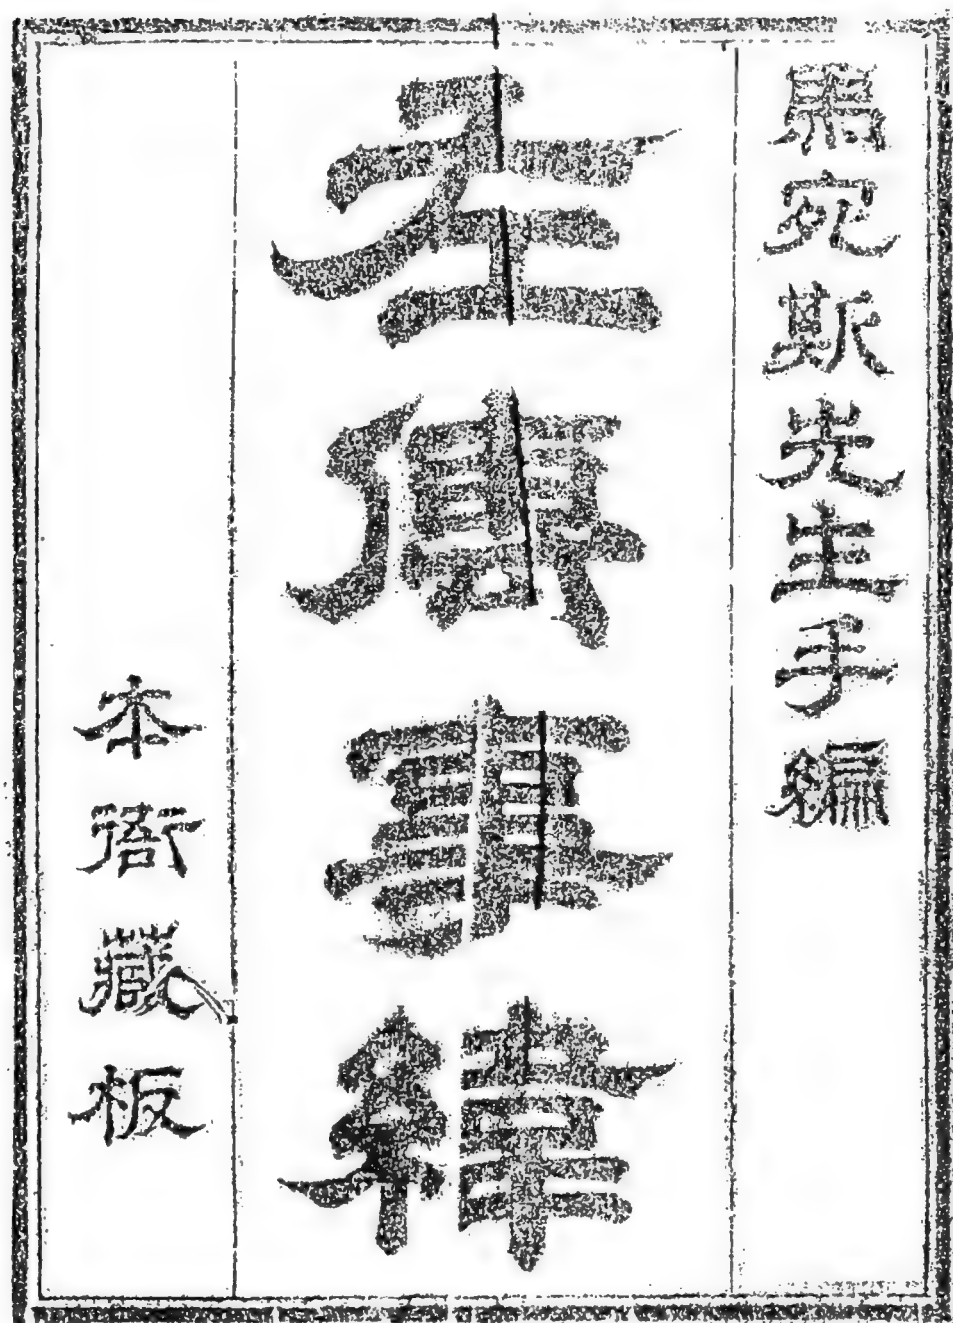 馬宛斯先生手編
左傳事緯
本衙藏板